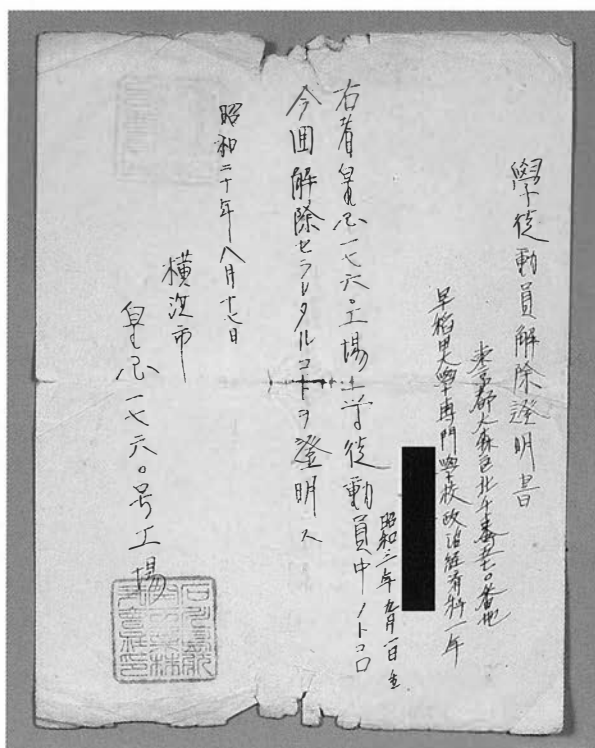 學徒動員解除證明書
東京都大森區北千束町五七〇番地
早稻田大學專門學校政治経済科一年
昭和三年九月一日生
右者皇国一七六〇工場ニ学徒動員中ノトコロ
今回解除セラレタルコトヲ證明ス
昭和二十年八月十七日
横浜市
皇国一七六〇号工場